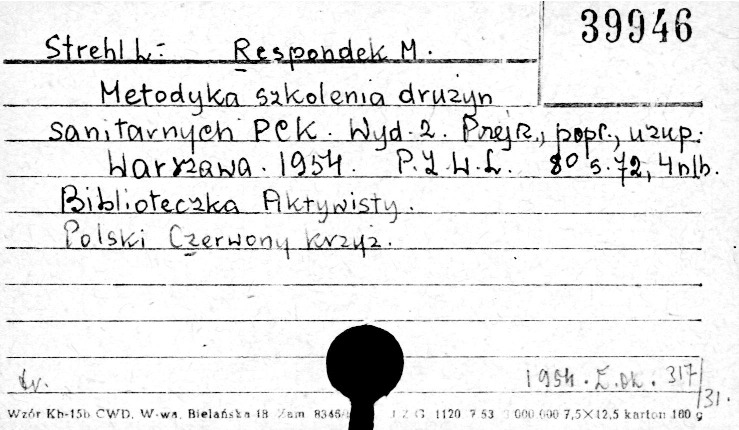 39946
Strehl L: Respondek M.
Metodyka szkolenia drużyn
sanitarnych PCK. Wyd. 2. Przejrz., popr., uzup.
Warszawa. 1954. P.Z.W.L. 8° s. 72, 4 nlb.
Biblioteczka Aktywisty.
Polski Czerwony Krzyż.
1954. Z. dk. 317/31.
Wzór Kb-15b CWD, W-wa, Bielańska 18 Zam 8345/ J Z G 1120 7 53 3 000 000 7,5×12,5 karton 160 g